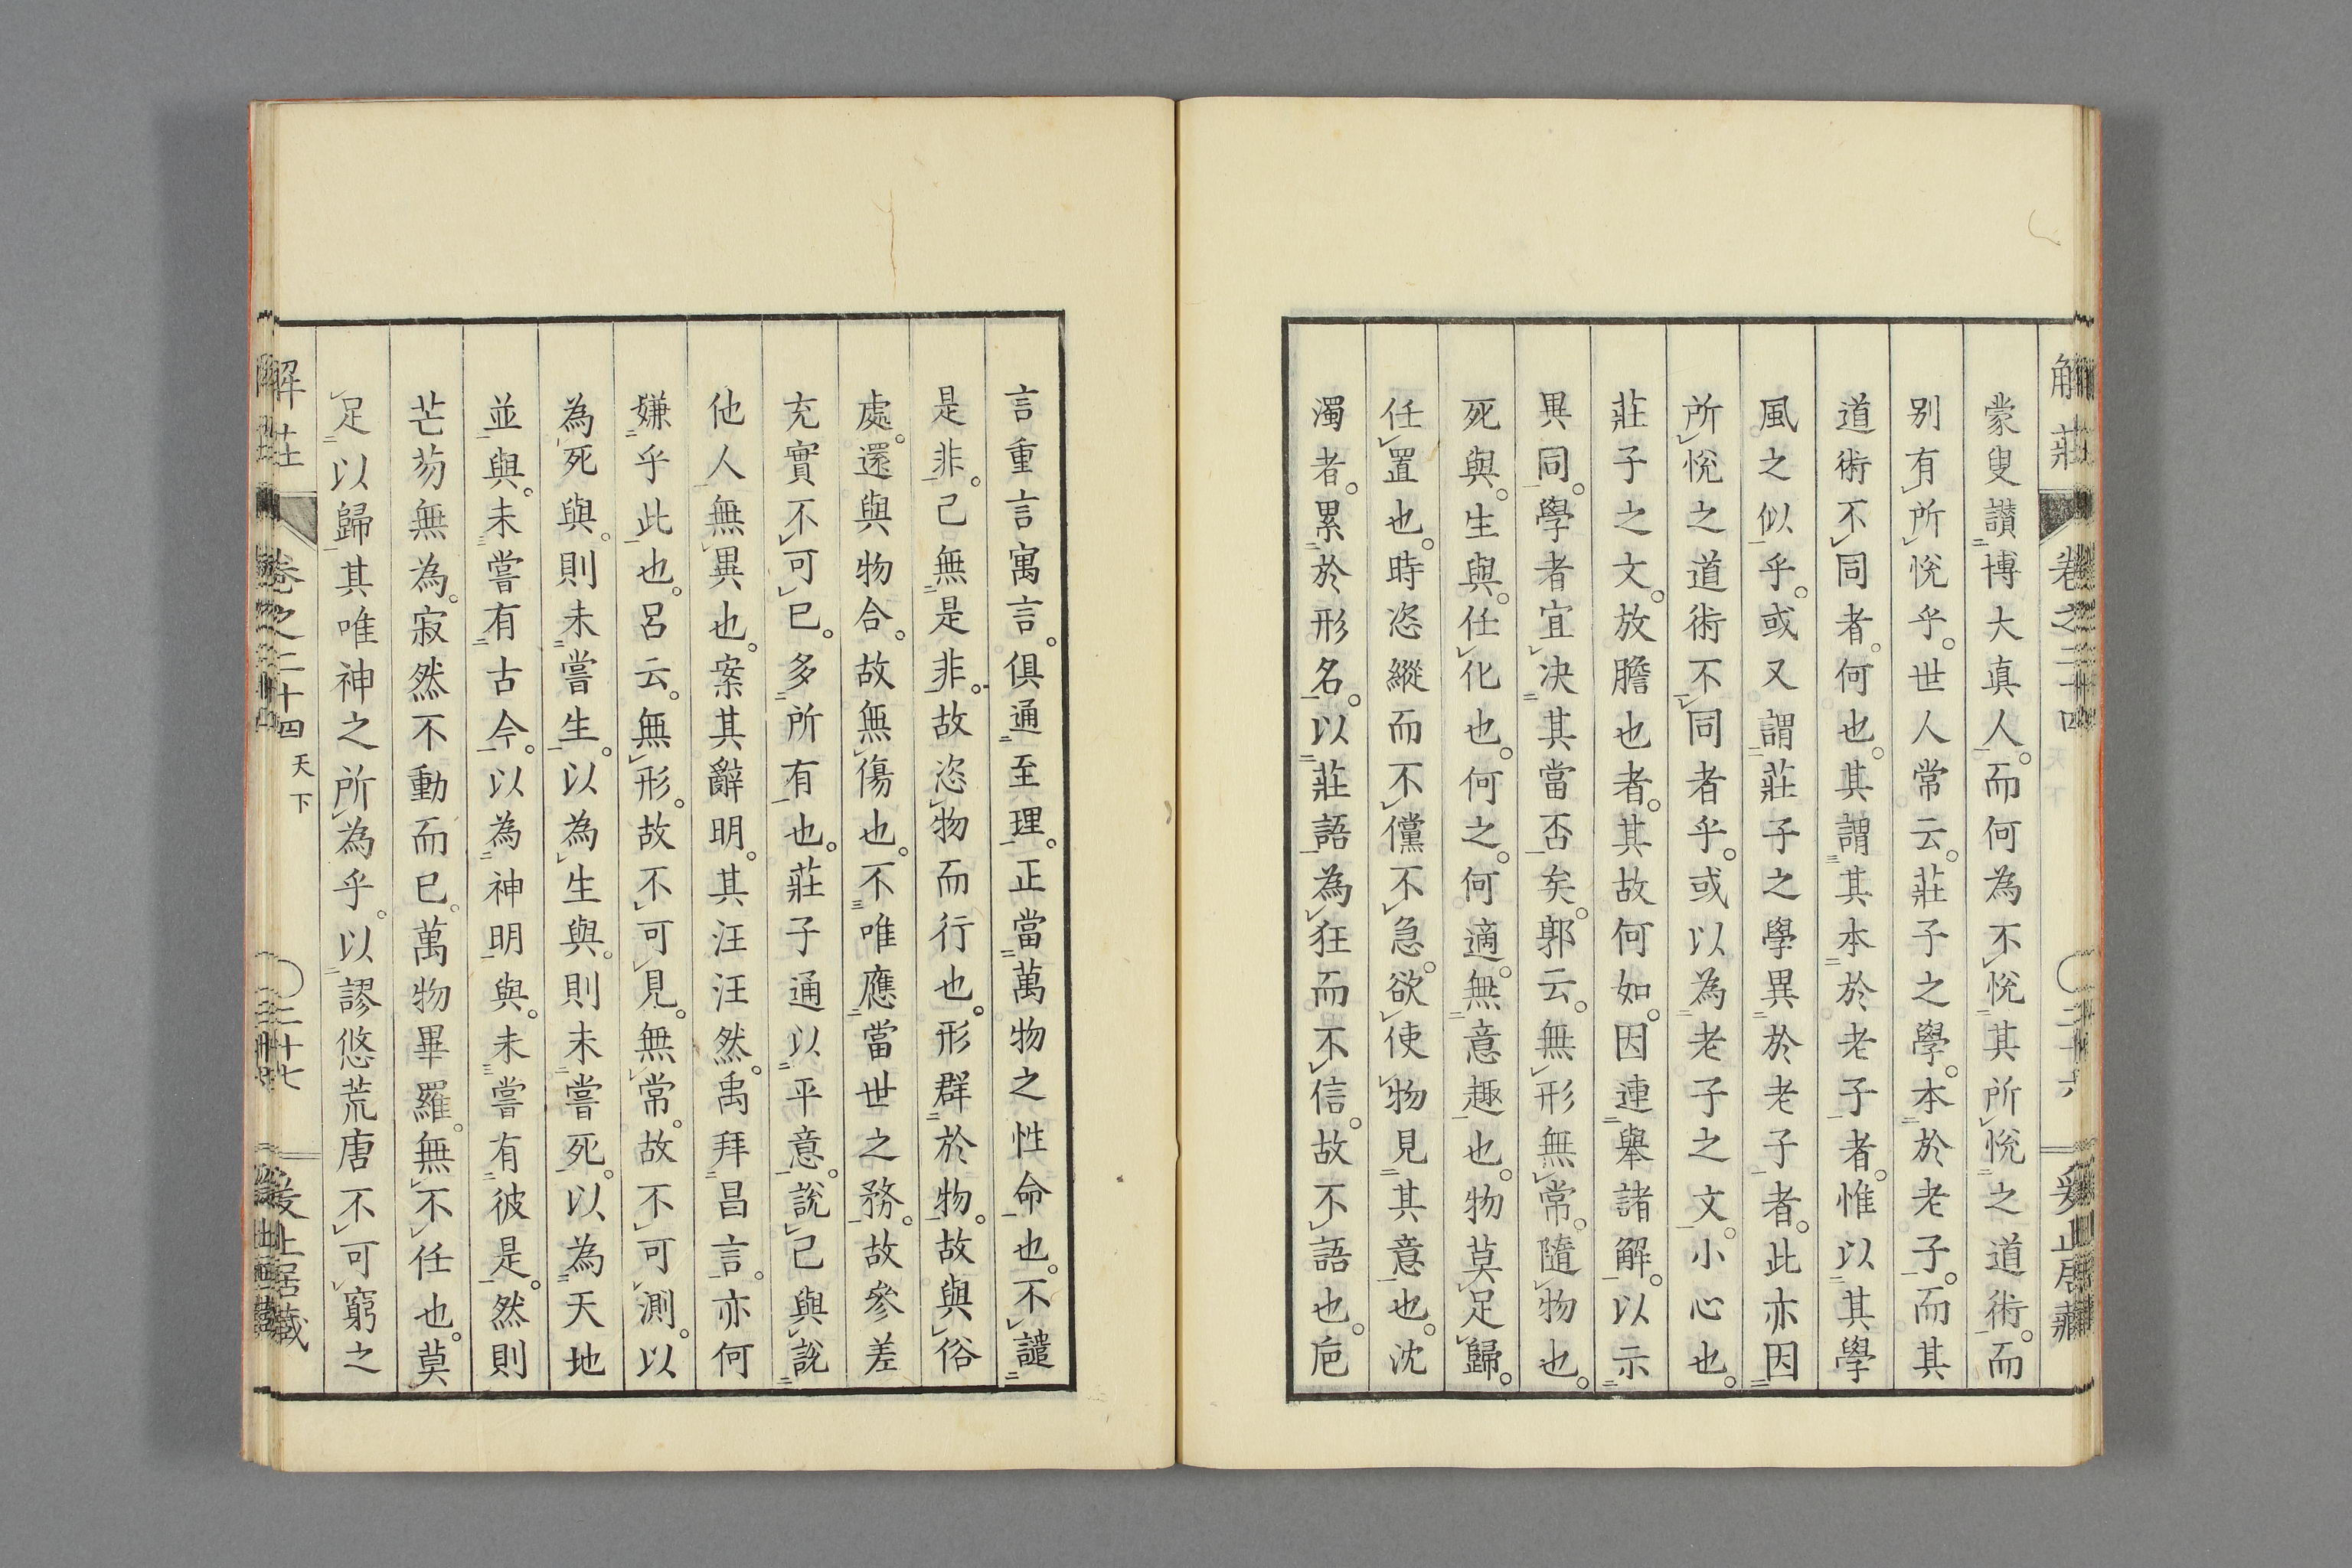 蒙叟讃博大真人。而何為不悅其所悅之道術。而
別有所悅乎。世人常云。莊子之學。本於老子。而其
道術不同者。何也。其謂其本於老子者。惟以其學
風之似乎。或又謂莊子之學異於老子者。此亦因
所悅之道術不同者乎。或以為老子之文。小心也。
莊子之文。放膽也者。其故何如。因連舉諸解。以示
異同。學者宜決其當否矣。郭云。無形無常。隨物也。
死與。生與。任化也。何之。何適。無意趣也。物莫足歸。
任置也。時恣縱而不儻。不急。欲使物見其意也。沈
濁者。累於形名。以莊語為狂而不信。故不語也。巵
言重言寓言。俱通至理。正當萬物之性命也。不譴
是非。己無是非。故恣物而行也。形群於物。故與俗
處。還與物合。故無傷也。不唯應當世之務。故參差
充實不可已。多所有也。莊子通以平意。說己與說
他人無異也。案其辭明。其汪汪然。禹拜昌言。亦何
嫌乎此也。呂云。無形。故不可見。無常。故不可測。以
為死與。則未嘗生。以為生與。則未嘗死。以為天地
並與。未嘗有古今。以為神明與。未嘗有彼是。然則
芒芴無為。寂然不動而已。萬物畢羅。無不任也。莫
足以歸其唯神之所為乎。以謬悠荒唐不可窮之
解莊 卷之二十四 天下 〇二十七